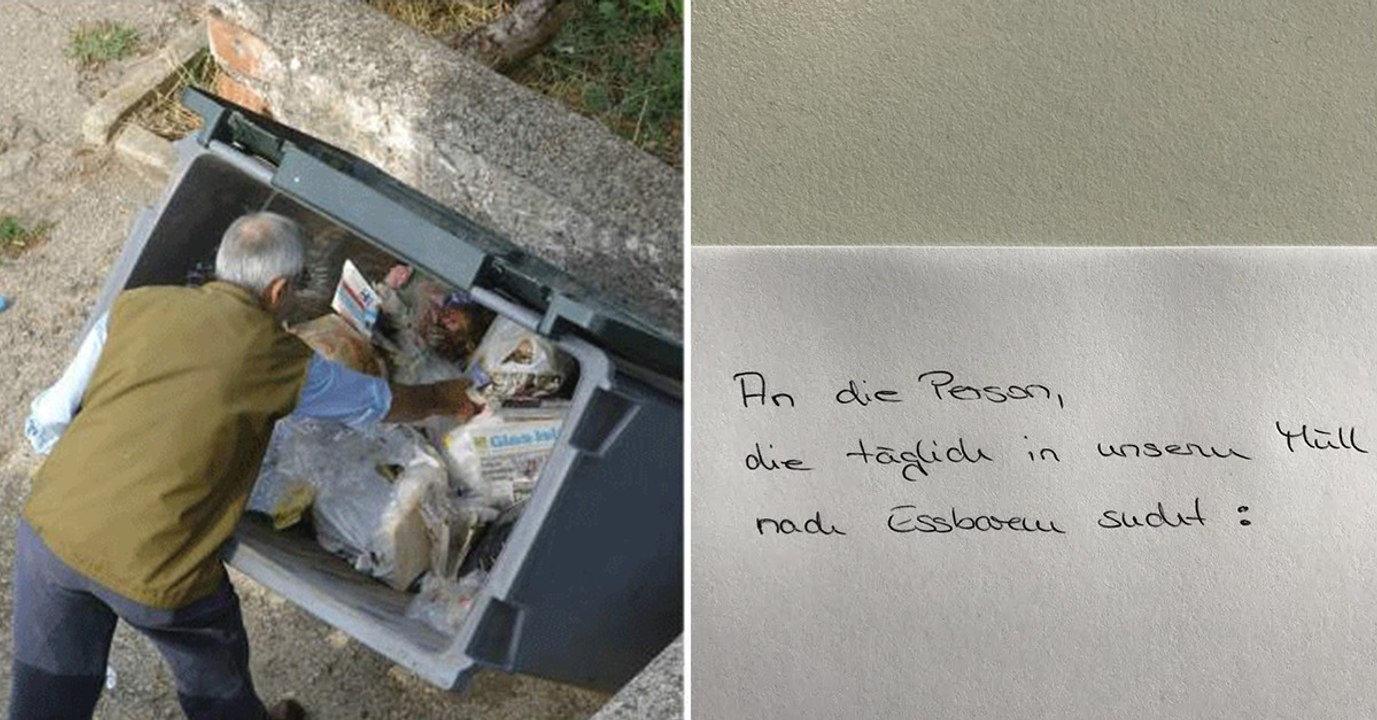 An die Person,
die täglich in unserem Müll
nach Essbarem sucht :